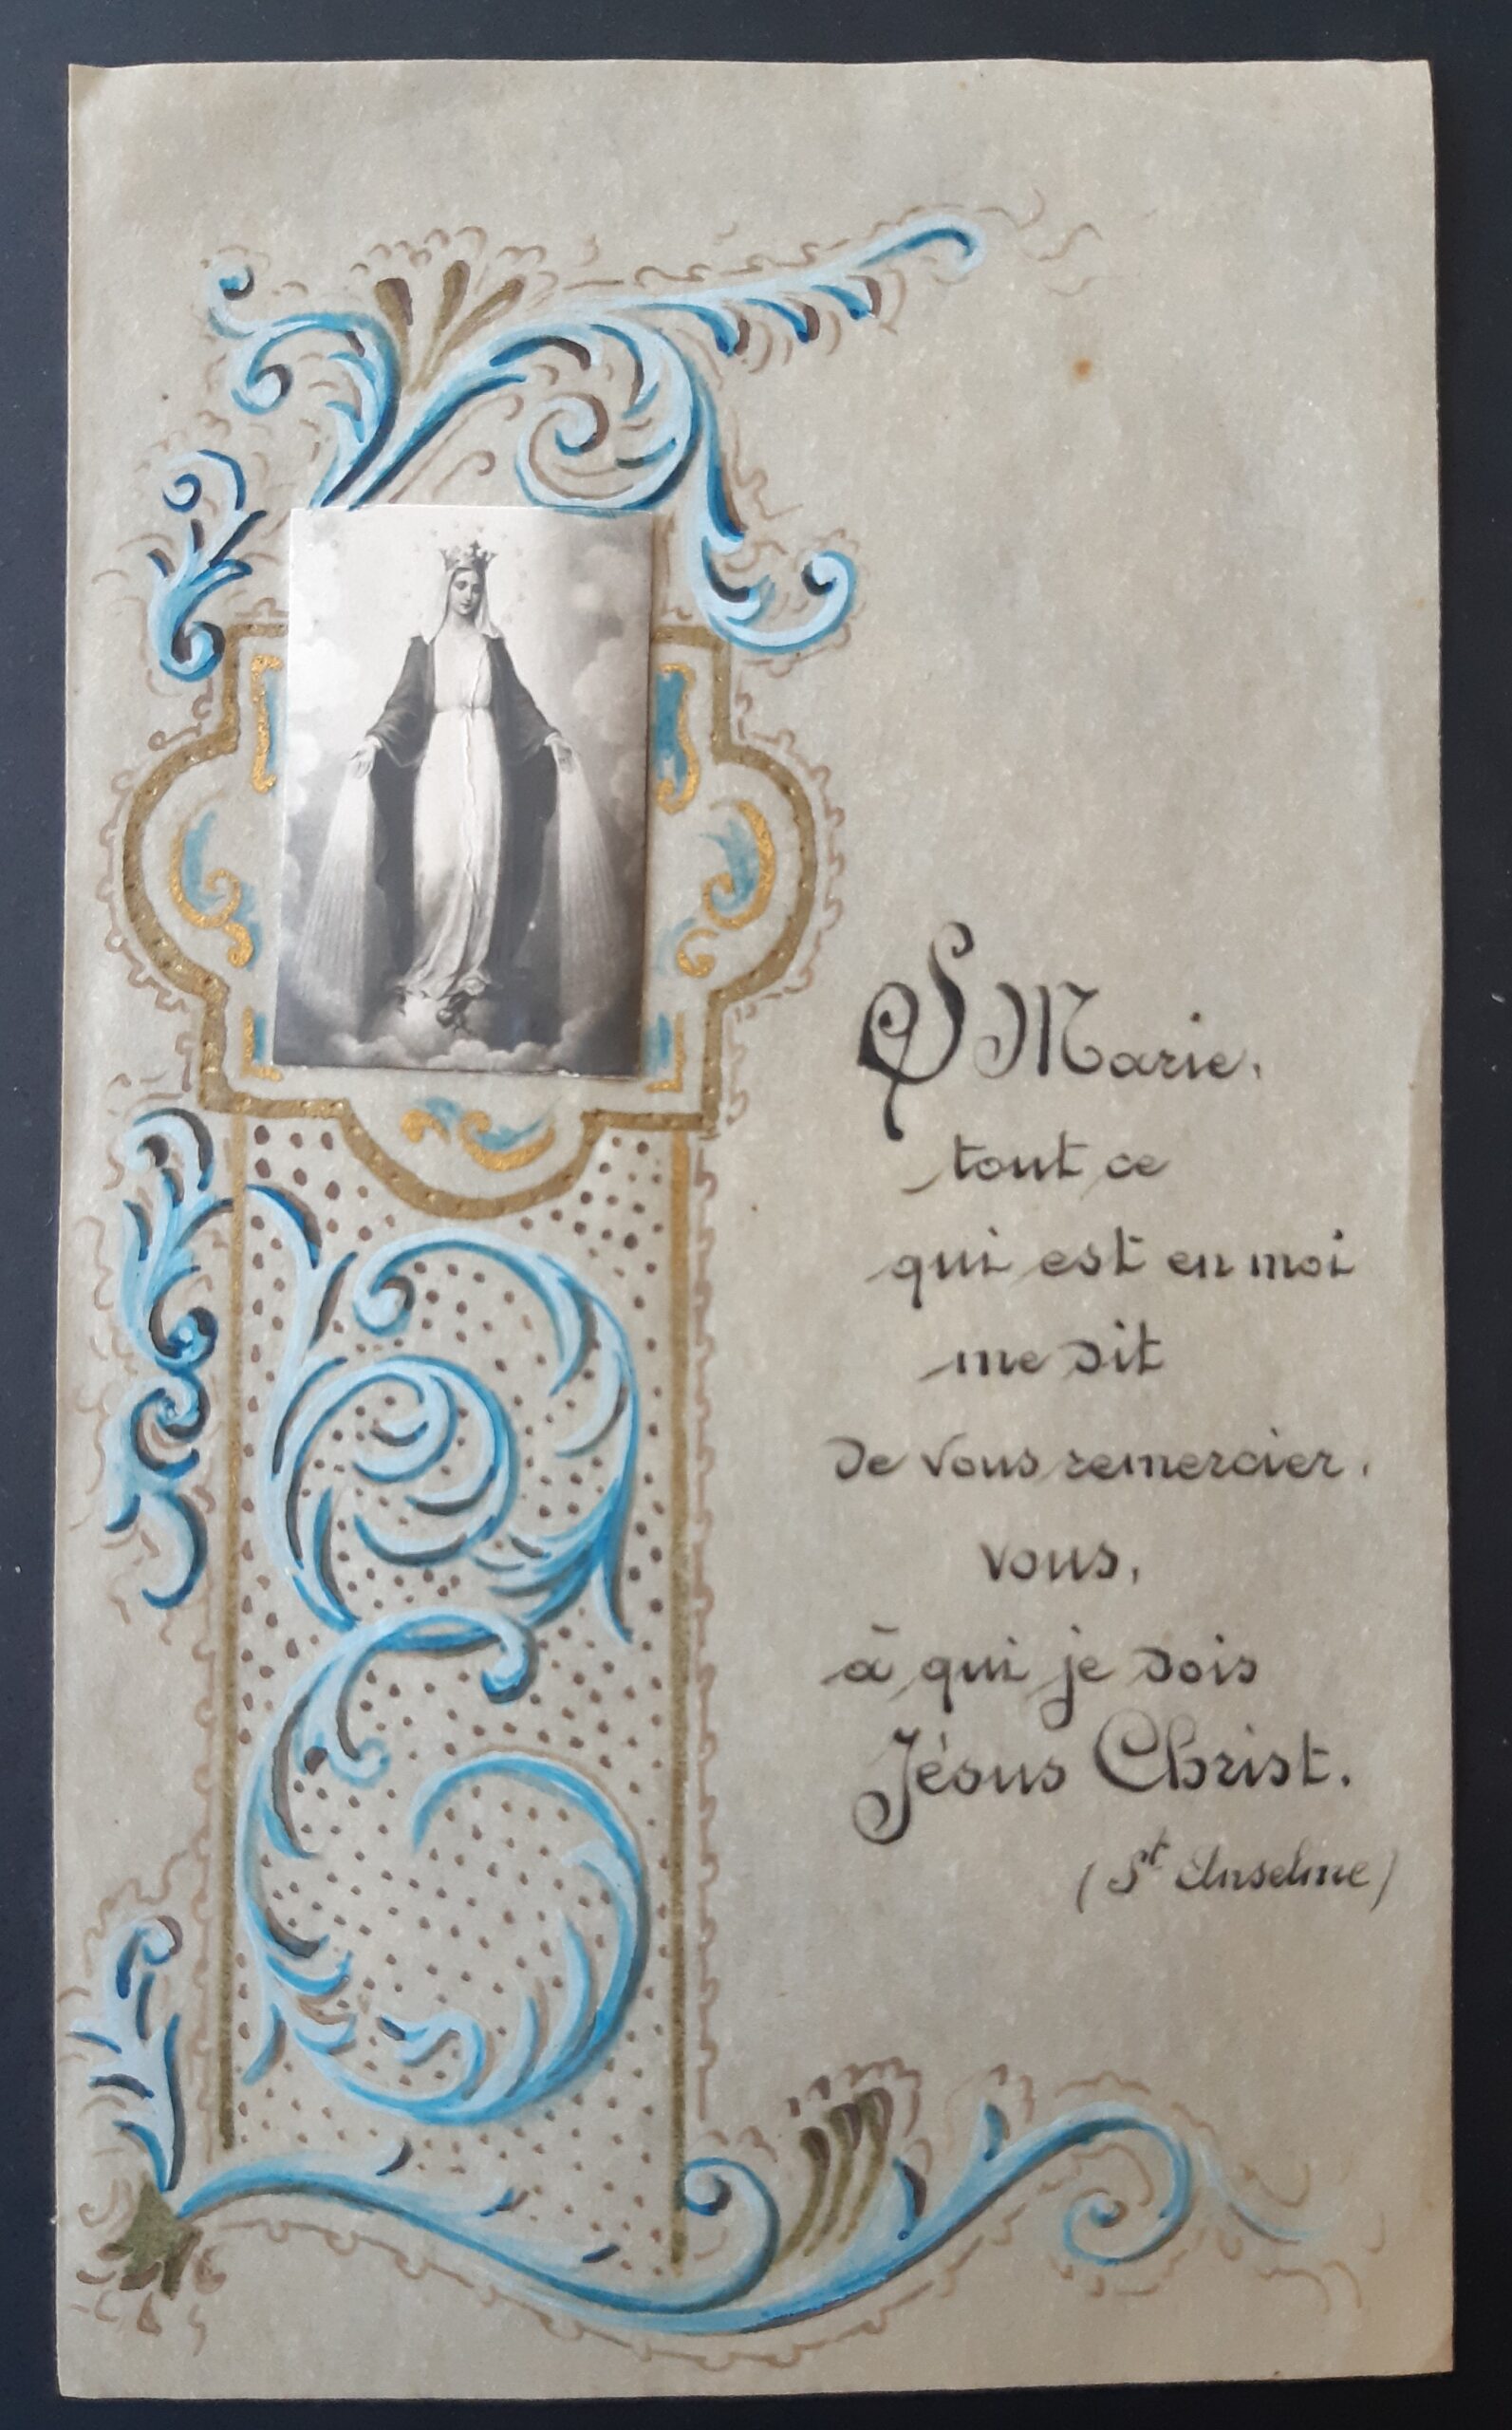 O Marie,
tout ce
qui est en moi
me dit
de vous remercier,
vous,
à qui je dois
Jésus Christ.
(St Anselme)